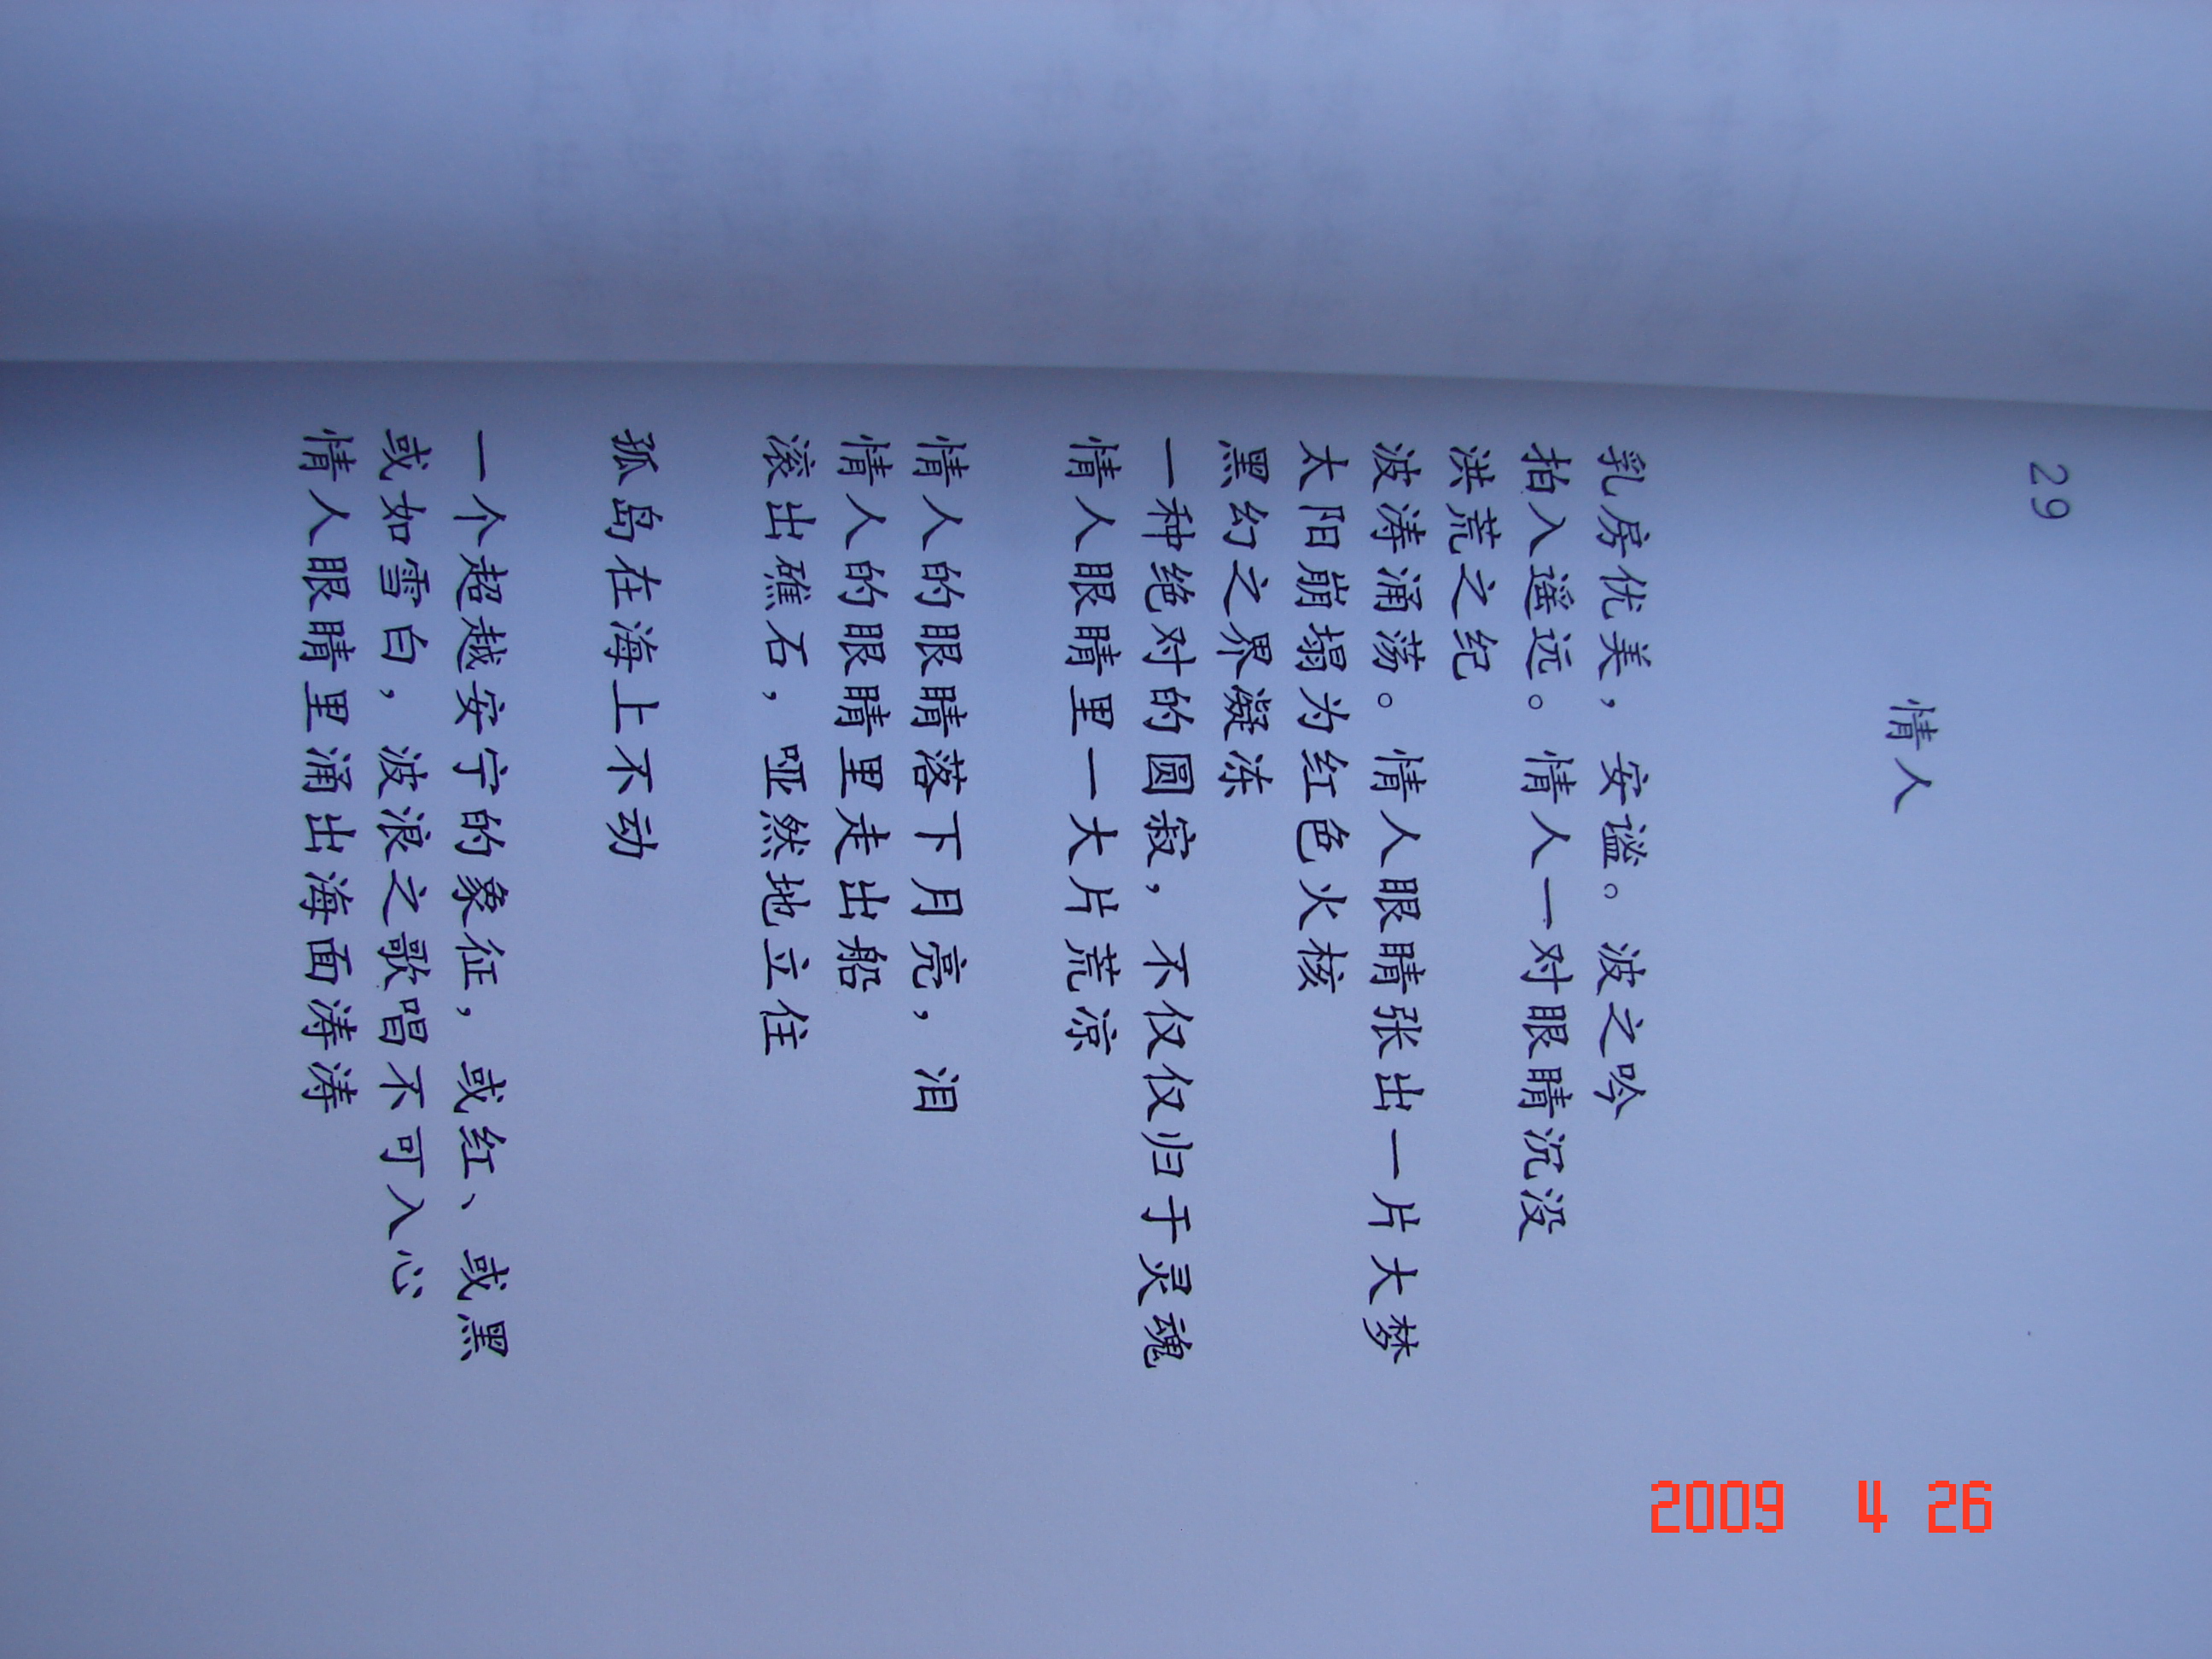 29
情人
乳房优美，安谧。波之吟
拍入遥远。情人一对眼睛沉没
洪荒之纪
波涛涌荡。情人眼睛张出一片大梦
太阳崩塌为红色火核
黑幻之界凝冻
一种绝对的圆寂，不仅仅归于灵魂
情人眼睛里一大片荒凉
情人的眼睛落下月亮，泪
情人的眼睛里走出船
滚出礁石，哑然地立住
孤岛在海上不动
一个超越安宁的象征，或红、或黑
或如雪白，波浪之歌唱不可入心
情人眼睛里涌出海面涛涛
2009 4 26